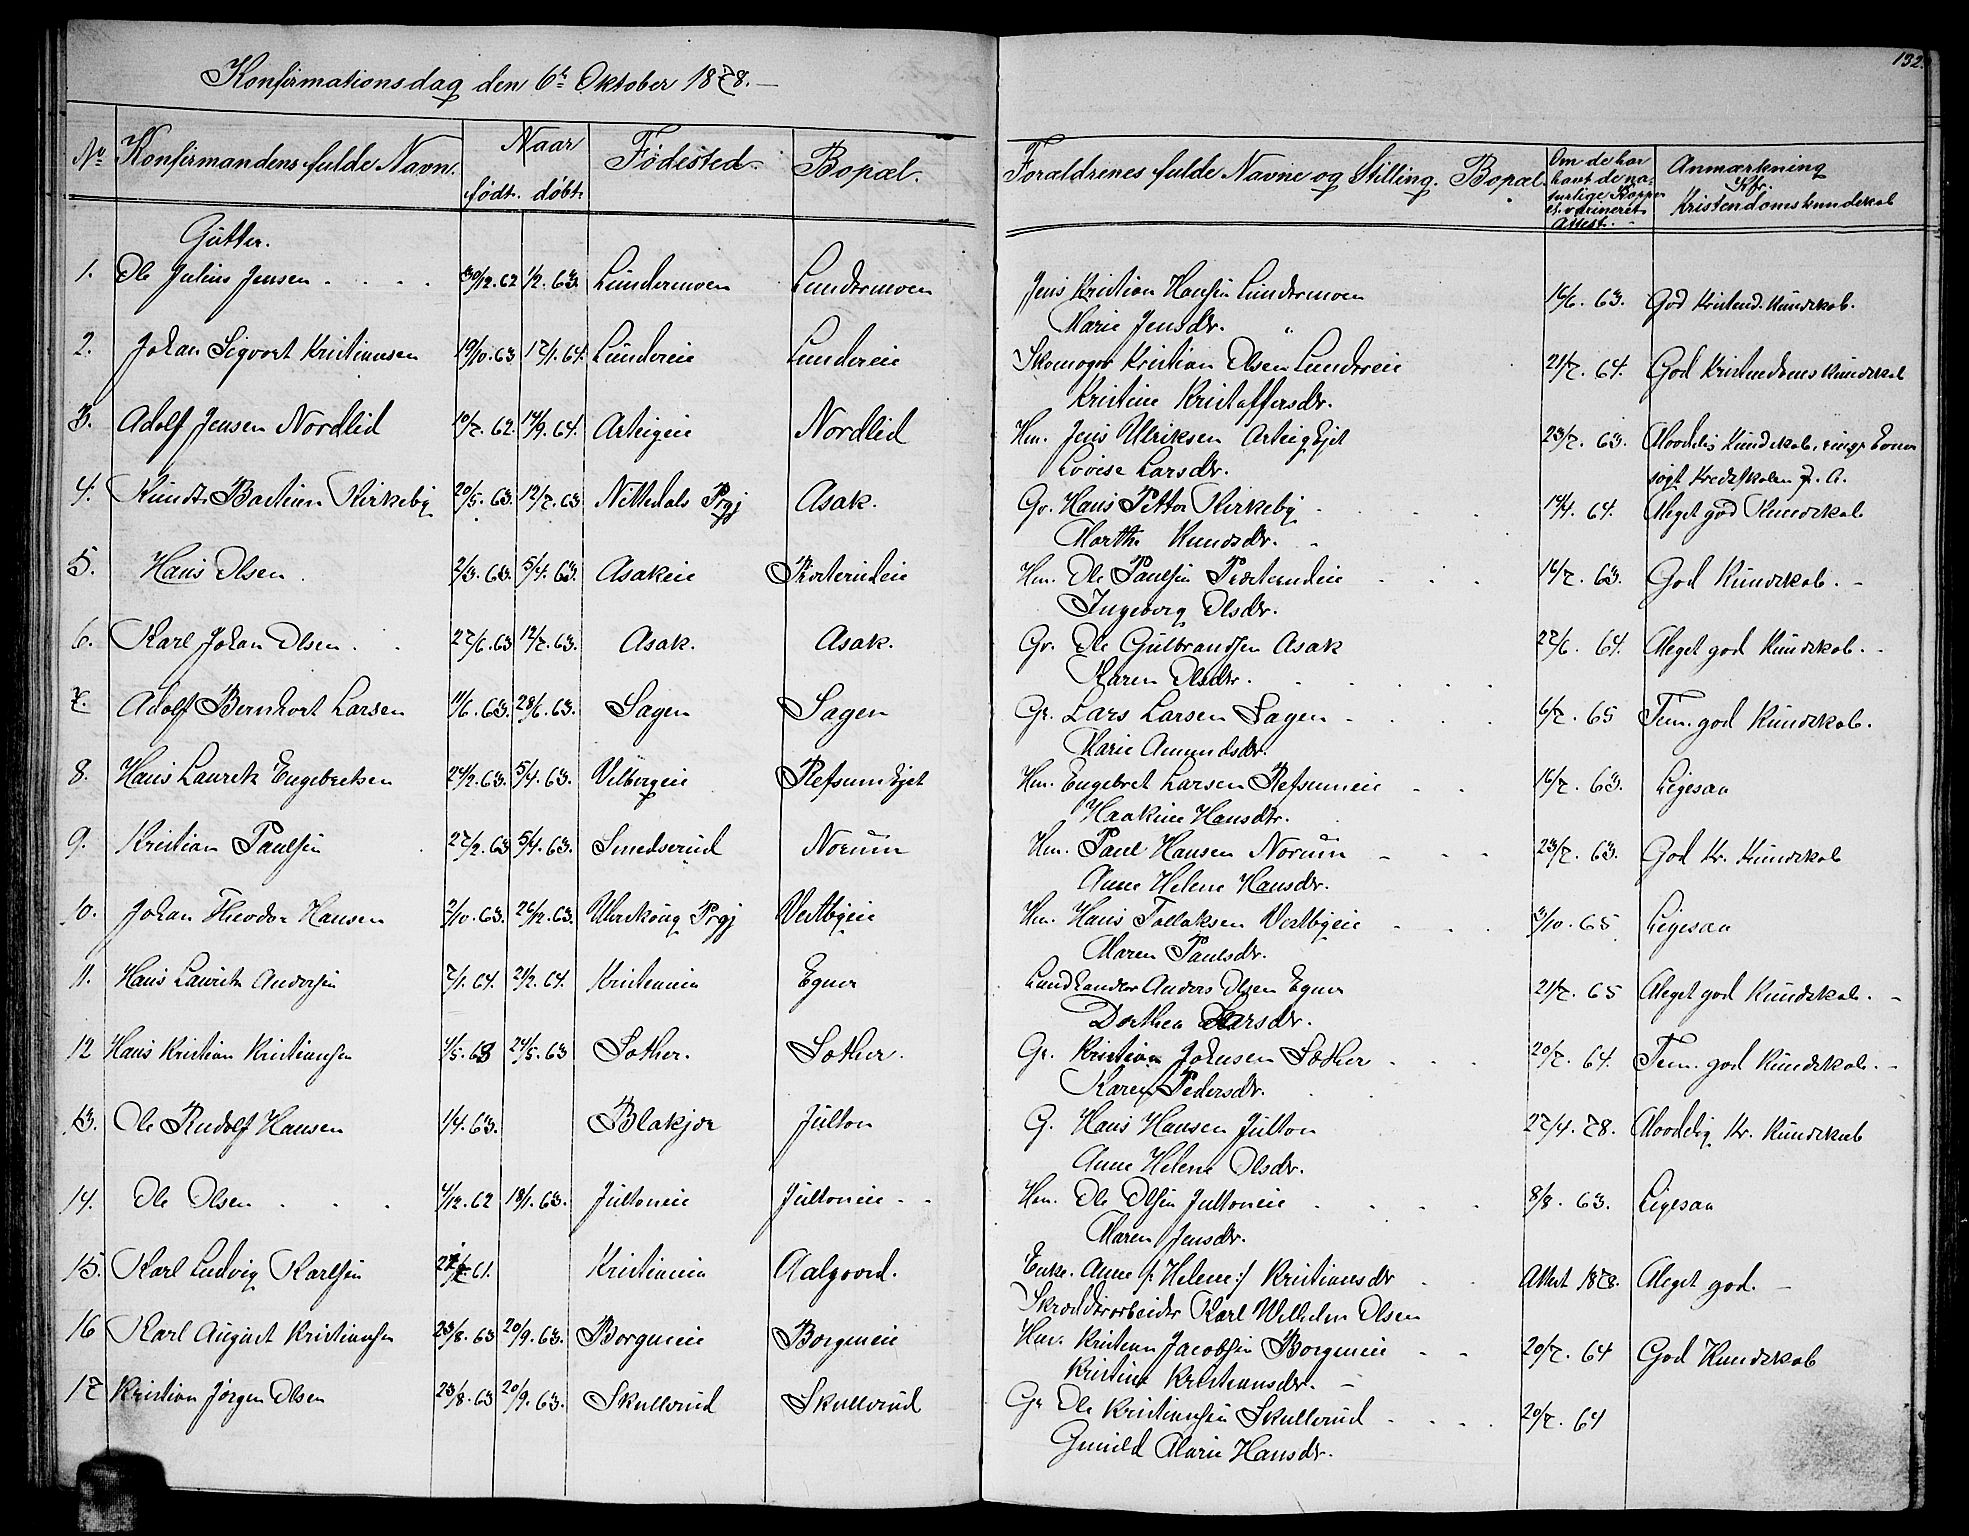 132.
Konfirmationsdag den 6t Oktober 1878.
No Konfirmandens fulde Navn. Naar født. døbt. Fødested. Bopæl. Forældrenes fulde Navne og Stilling. Bopæl. Om de har havt de naturlige Kopper el. vaccineret Attest. Anmærkning Kristendomskundskab
Gutter.
1. Ole Julius Jensen 30/12.62 1/2.63 Lundermoen Lundermoen Jens Kristian Hansen Lundermoen 16/6. 63. God Kristend. Kundskab.
Marie Jensdr. "
2. Johan Sigvart Kristiansen 19/10.63 17/1.64. Lundereie Lundereie Skomager Kristian Olsen Lundereie 21/7. 64. God Kristendoms Kundskab
Kristine Kristoffersdr.
3. Adolf Jensen Nordlid 10/7.62. 14/9.64. Arteigeie Nordlid Hm. Jens Ulriksen Arteig Ejet 23/7. 63.
Lovise Larsdr.
4. Bastian Kirkeby 20/5.63. 12/7.63 Nittedals Prgj Asak. Gr. Hans Petter Kirkeby 14/4. 64. Meget god Kundskab
Marthe Knudsdr.
5. Hans Olsen 2/3.63. 5/4.63. Asakeie Prosterudeie Hm. Ole Paulsen Prosterudeie 16/7. 63. God Kundskab.
Ingeborg Olsdr.
6. Karl Johan Olsen 27/6.63 12/7.63. Asak. Asak. Gr. Ole Gulbrandsen Asak 27/6. 64. Meget god Kundskab.
Karen Olsdr.
7. Adolf Bernhart Larsen 11/6.63. 28/6.63. Sagen Sagen Gr. Lars Larsen Sagen 6/7. 65 Tem. god Kundskab.
Marie Amundsdr.
8. Hans Lauritz Engebretsen 24/2.63. 5/4.63. Vilbergeie Refsum Ejet Hm. Engebret Larsen Refsumeie 16/7. 63. Ligesaa
Haakine Hansdtr.
9. Kristian Paulsen 27/2.63 5/4.63. Smedserud Norum Hm. Paul Hansen Norum 23/7. 63. God Kr. Kundskab
Anne Helene Hansdr.
10. Johan Theodor Hansen 2/10.63. 26/12.63. Urskoug Prgj Vestbyeie Hm. Hans Tollaksen Vestbyeie 3/10. 65 Ligesaa
Maren Paulsdr.
11. Hans Lauritz Andersen 7/1.64. 21/2.64. Kristiania Egner Landhandler Anders Olsen Egner 21/7. 65 Meget god Kundskab.
Dorthea Larsdr.
12 Hans Kristian Kristiansen 4/5.63 24/5.63 Sother. Sother. Gr. Kristian Johnsen Sother 20/7. 64. Tem. god Kundskab.
Karen Pedersdr.
13. Ole Rudolf Hansen 1/4.63. Blakjer Julton G. Hans Hansen Julton 27/4. 78. Maadelig Kr. Kundskab
Anne Helene Olsdr.
14. Ole Olsen 4/12.62 18/1.63. Jultoneie Jultoneie Hm. Ole Olsen Jultoneie 8/8. 63. Ligesaa
Maren Jensdr.
15. Karl Ludvig Karlsen 27/7.61. Kristiania Aalgaard. Enke. Anne /: Helene :/ Kristiansdr Attest 1878. Meget god.
Skrædderarbeider Karl Wilhelm Olsen
16 Karl August Kristiansen 23/8.63 20/9.63. Borgeneie Borgeneie Hm. Kristian Jacobsen Borgeneie 20/7. 64 God Kundskab
Kristine Kristiansdr.
17 Kristian Jørgen Olsen 23/8.63 20/9.63. Skullerud Skullerud Gr. Ole Kristiansen Skullerud 20/7. 64
Gunild Marie Hansdr.